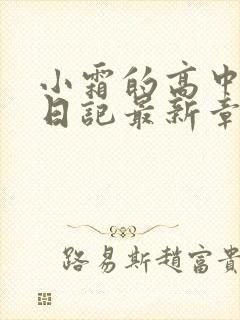 小霜的高中
日記最新章
路易斯趙富貴